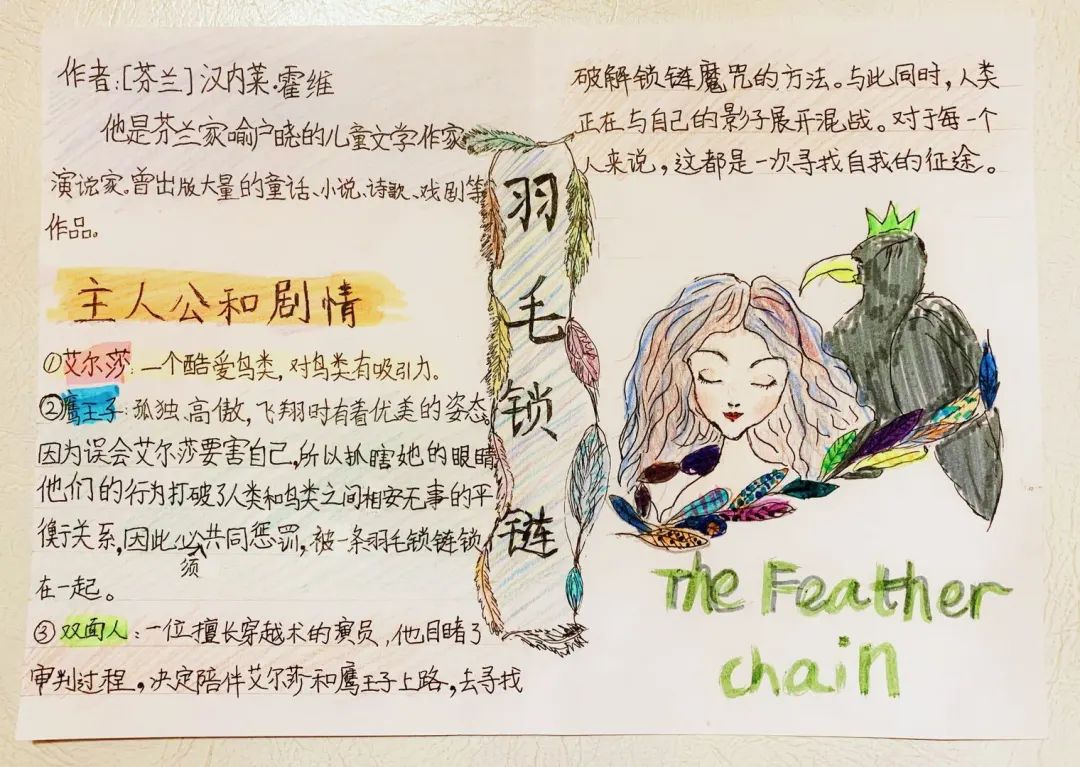 作者:[芬兰]汉内莱·霍维
他是芬兰家喻户晓的儿童文学作家
演说家。曾出版大量的童话、小说、诗歌、戏剧等
作品。
主人公和剧情
①艾尔莎:一个酷爱鸟类,对鸟类有吸引力。
②鹰王子:孤独、高傲,飞翔时有着优美的姿态。
因为误会艾尔莎要害自己,所以抓瞎她的眼睛
他们的行为打破了人类和鸟类之间相安无事的平
衡关系,因此必须共同惩罚,被一条羽毛锁链锁
在一起。
③双面人:一位擅长穿越术的演员,他目睹了
审判过程。,决定陪伴艾尔莎和鹰王子上路,去寻找
羽毛锁链
破解锁链魔咒的方法。与此同时,人类
正在与自己的影子展开混战。对于每一个
人来说,这都是一次寻找自我的征途。
The Feather
chain